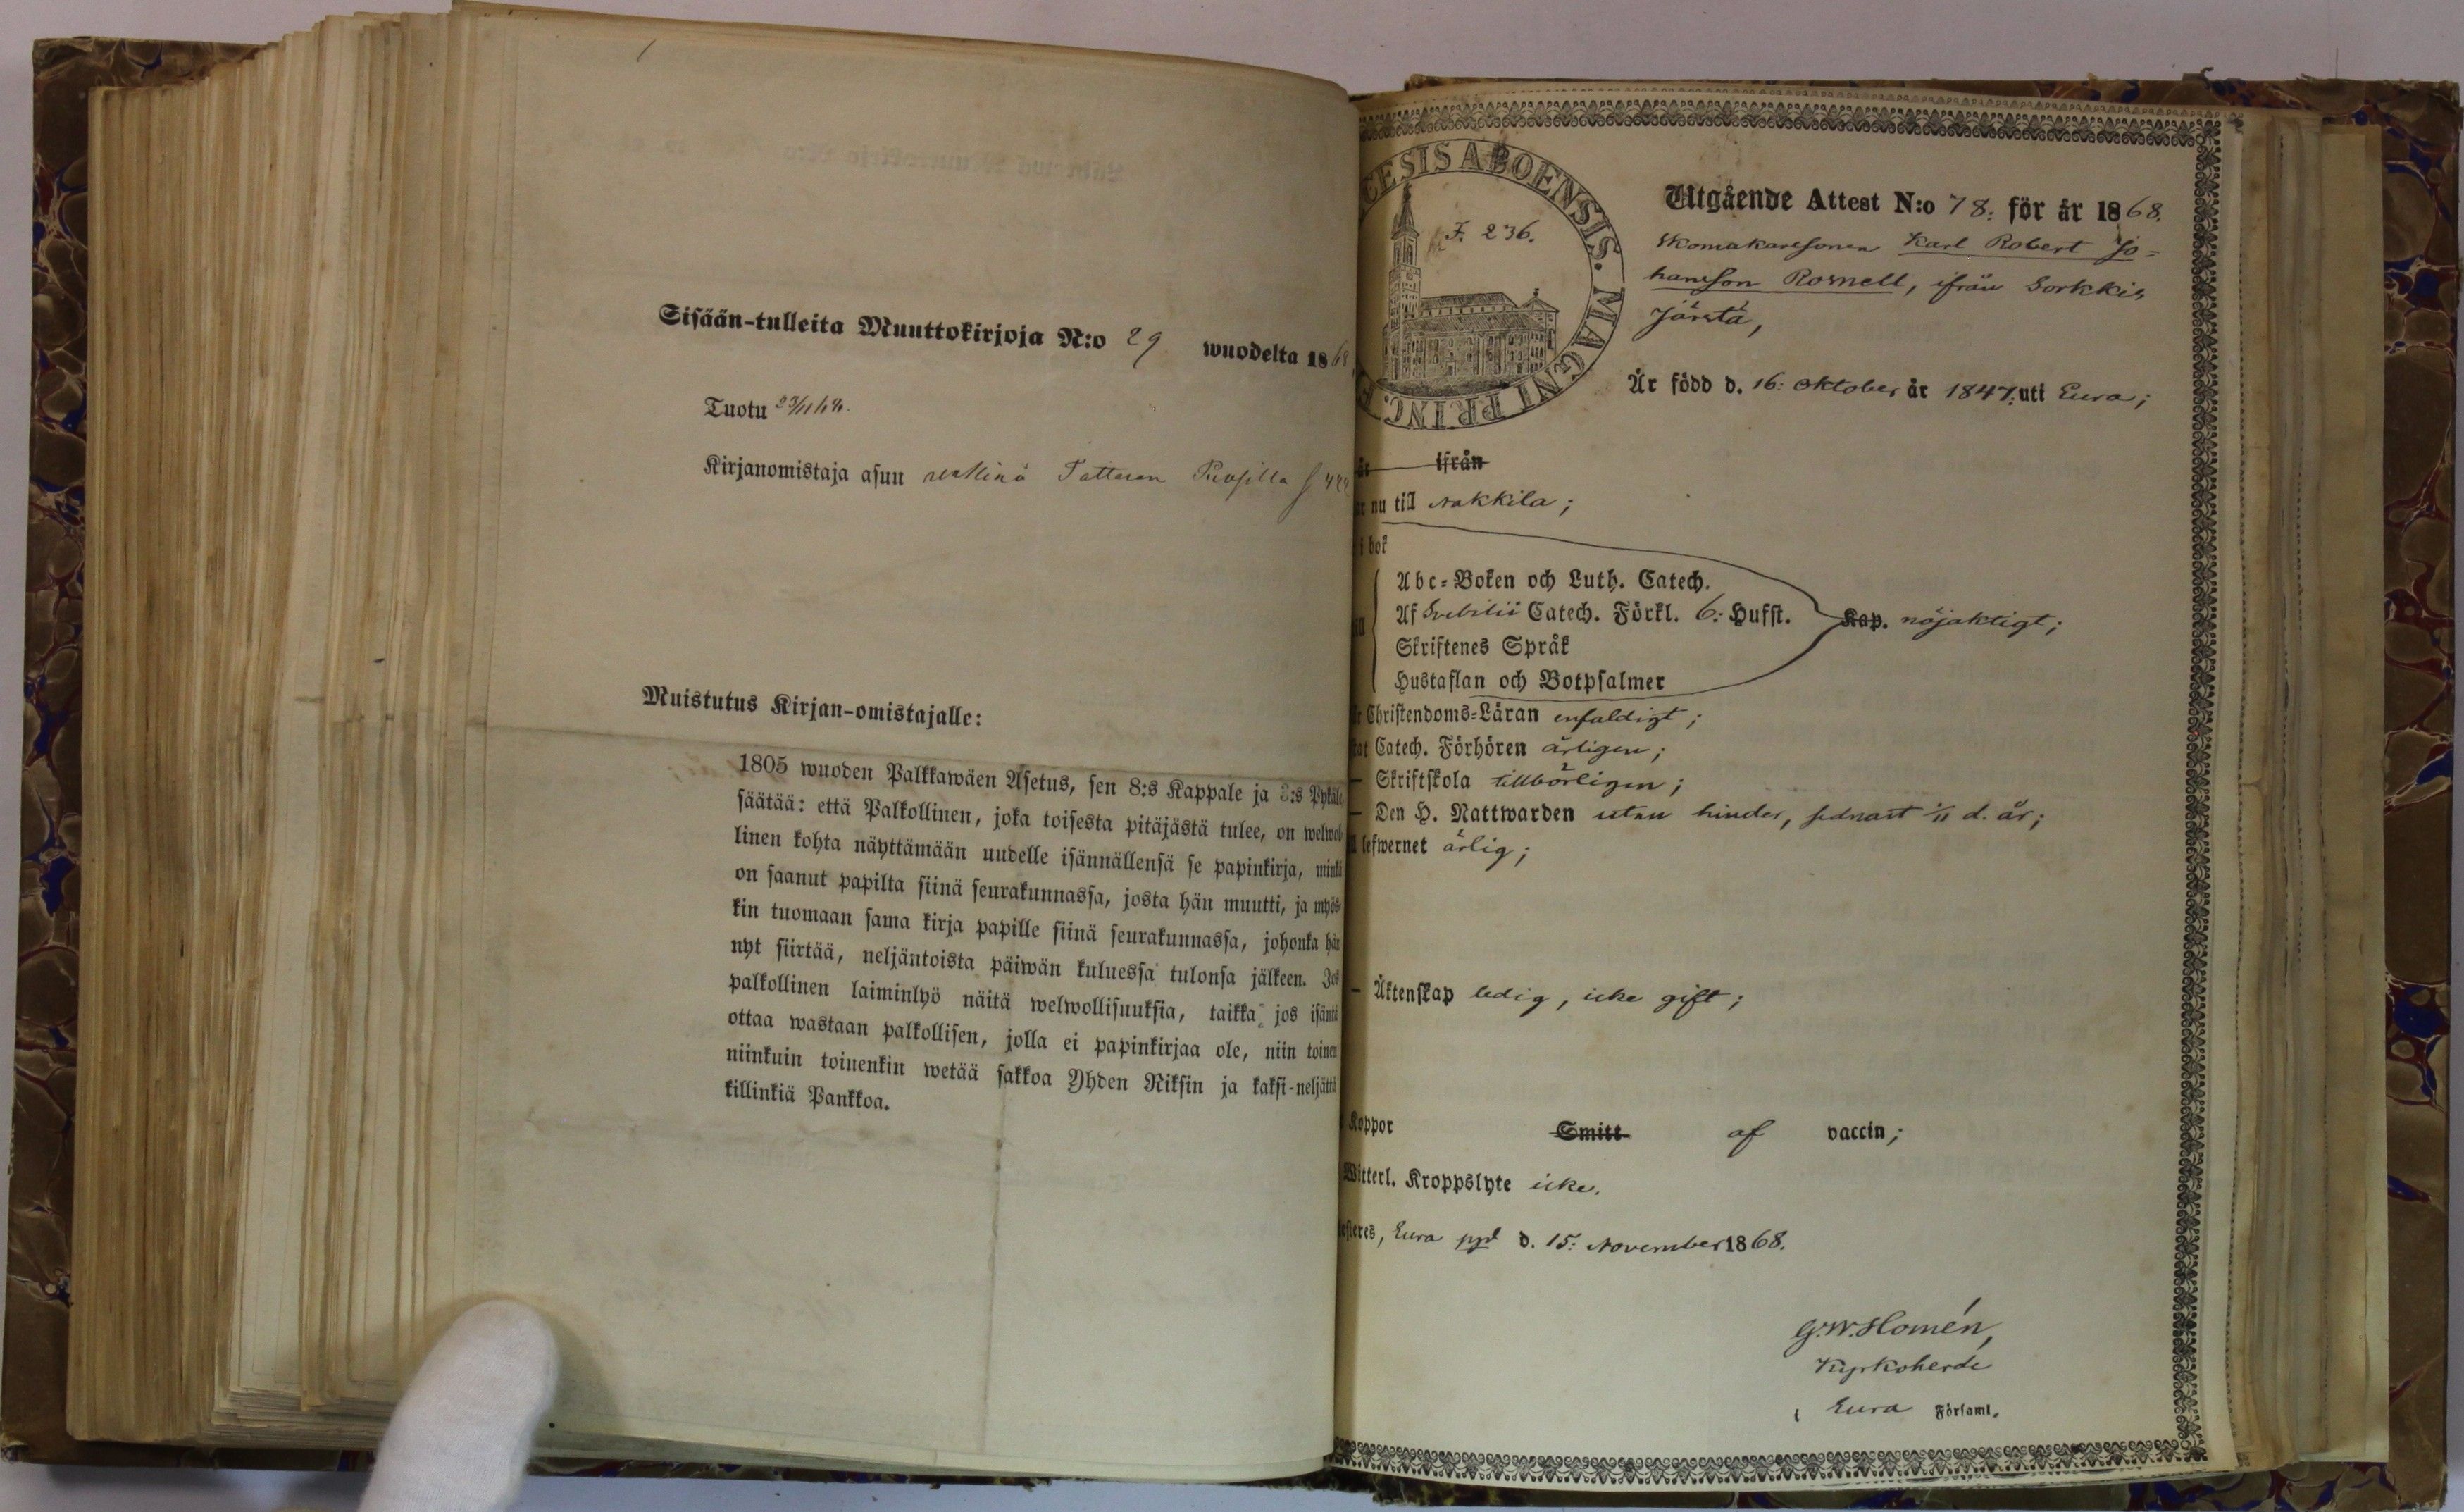 Sisään-tulleita Muuttokirjoja N:o 29 wuodelta 1868
Tuotu 23/11 68.
Kirjanomistaja asuu renkinä Tattaran Puosilla
Muistutus Kirjan-omistajalle:
1805 wuoden Palkkawäen Asetus, sen 8:s Kappale ja 3:s Pykälä
säätää: että Palkollinen, joka toisesta pitäjästä tulee, on welwol-
linen kohta näyttämään uudelle isännällensä se papinkirja, minkä
on saanut papilta siinä seurakunnassa, josta hän muutti, ja myös-
kin tuomaan sama kirja papille siinä seurakunnassa, johonka hän
nyt siirtää, neljäntoista päiwän kuluessa tulonsa jälkeen. Jos
palkollinen laiminlyö näitä welwollisuuksia, taikka jos isäntä
ottaa wastaan palkollisen, jolla ei papinkirjaa ole, niin toinen
niinkuin toinenkin wetää sakkoa Yhden Riksin ja kaksi-neljättä
killinkiä Pankkoa.
CESIS ABOENSIS. MAGNI PRINC.
F. 236.
Utgående Attest N:o 78: för år 1868.
Skomakaresonen Karl Robert Jo-
hansson Rosnell, ifrån Sorkkis
Järstä,
Är född d. 16: Oktober år 1847: uti Eura;
ifrån
nu till Nakkila;
i bok
Abc-Boken och Luth. Catech.
Af Svebilii Catech. Förkl. 6: Hufst. Kap. nöjaktigt;
Skriftenes Språk
Hustaflan och Botpsalmer
Christendoms-Läran enfaldigt;
Catech. Förhören årligen;
— Skriftskola tillbörligen;
— Den H. Nattwarden utan hinder, sednast 1/11 d. år;
lefwernet ärlig;
— Äktenskap ledig, icke gift;
Koppor Smitt af vaccin;
Witterl. Kroppslyte icke.
Eura ppd d. 15: November 1868.
G.W. Homén,
Kyrkoherde
i Eura Församl.